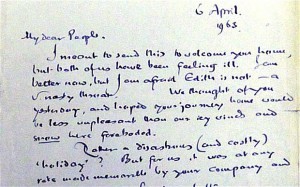 6 April.
1963
My dear People.
I meant to send this to welcome you home,
but both of us have been feeling ill. I am
better now, but I am afraid Edith is not – a
nasty throat. We thought of you
yesterday, and hoped your journey home would
be less unpleasant than our icy winds and
snow were foreboded.
Rather a disastrous (and costly)
'holiday'? But for us it was at any
rate made memorable by your company and